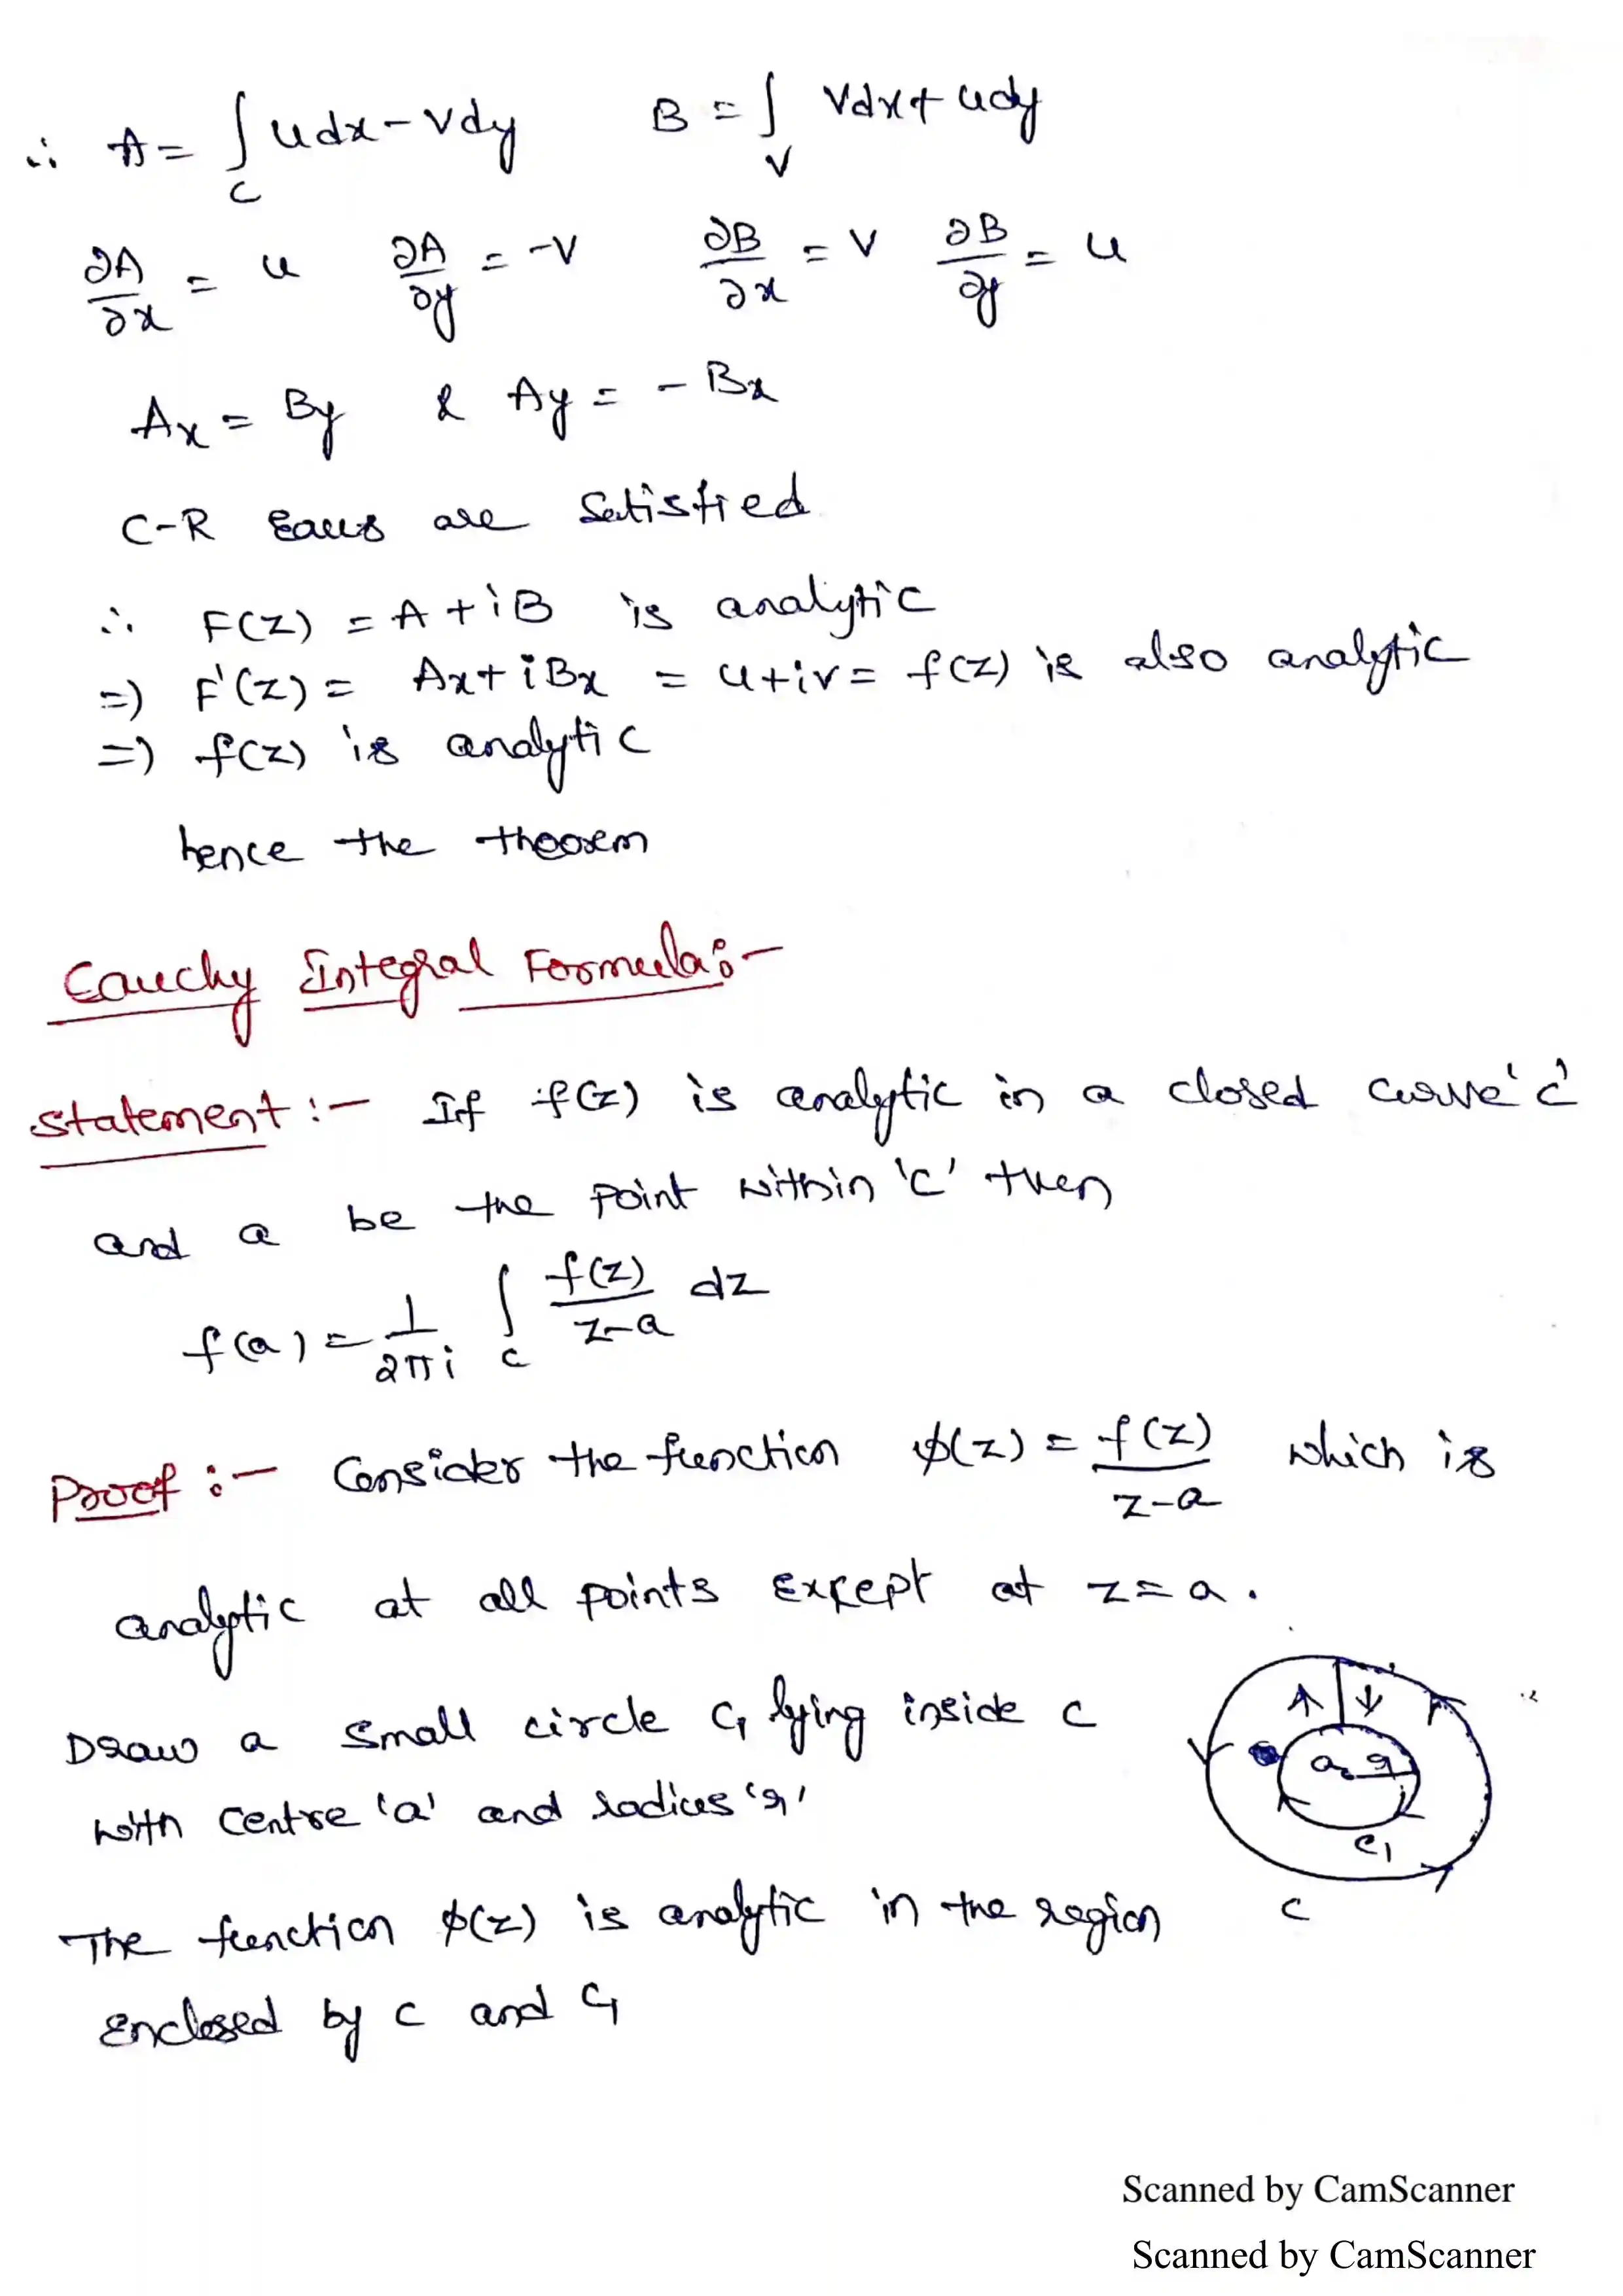 ∴ A = ∫_C udx - vdy B = ∫_V Vdx + udy
∂A/∂x = u ∂A/∂y = -V ∂B/∂x = V ∂B/∂y = u
Ax = By & Ay = - Bx
C-R Eqns are Satisfied
∴ F(Z) = A + iB is analytic
=) F'(Z) = Ax + iBx = u+iv = f(Z) is also analytic
=) f(Z) is analytic
hence the theorem
Cauchy Integral Formula:-
Statement :- If f(z) is analytic in a closed curve 'c'
and a be the point within 'c' then
f(a) = 1/2πi ∫_c f(z)/z-a dz
Proof :- Consider the function ϕ(z) = f(z)/z-a which is
analytic at all points Except at z = a.
Draw a small circle C1 lying inside c
with centre 'a' and radius 'r'
a r
C1
The function ϕ(z) is analytic in the region
c
Enclosed by c and C1
Scanned by CamScanner
Scanned by CamScanner